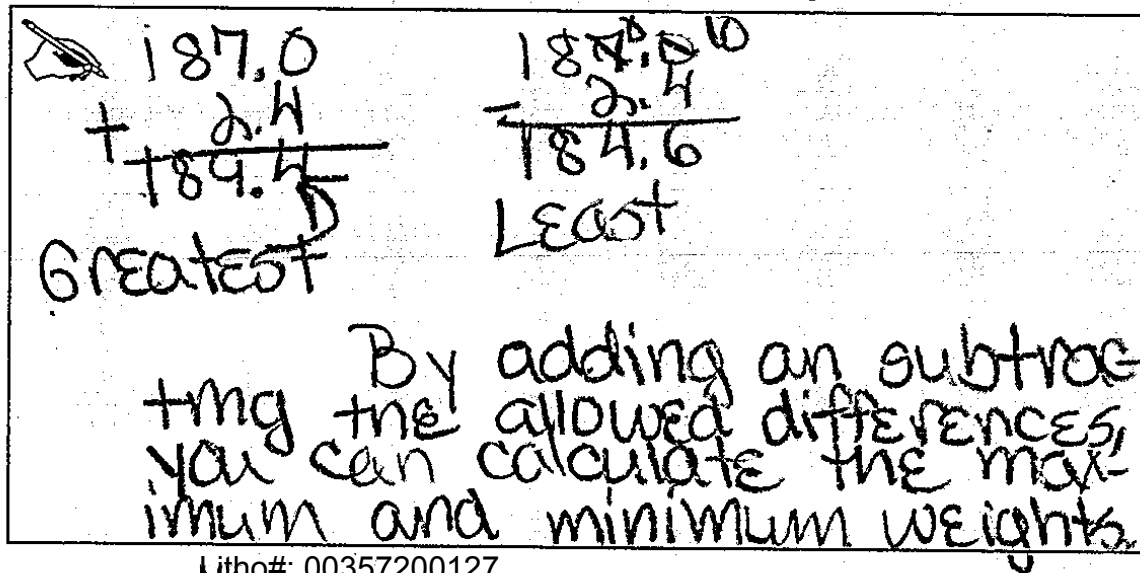 187.0
+ 2.4
189.4
Greatest
187.0 10
- 2.4
184.6
Least
By adding an subtrac-
ting the allowed differences,
you can calculate the max-
imum and minimum weights.
Litho#: 00357200127